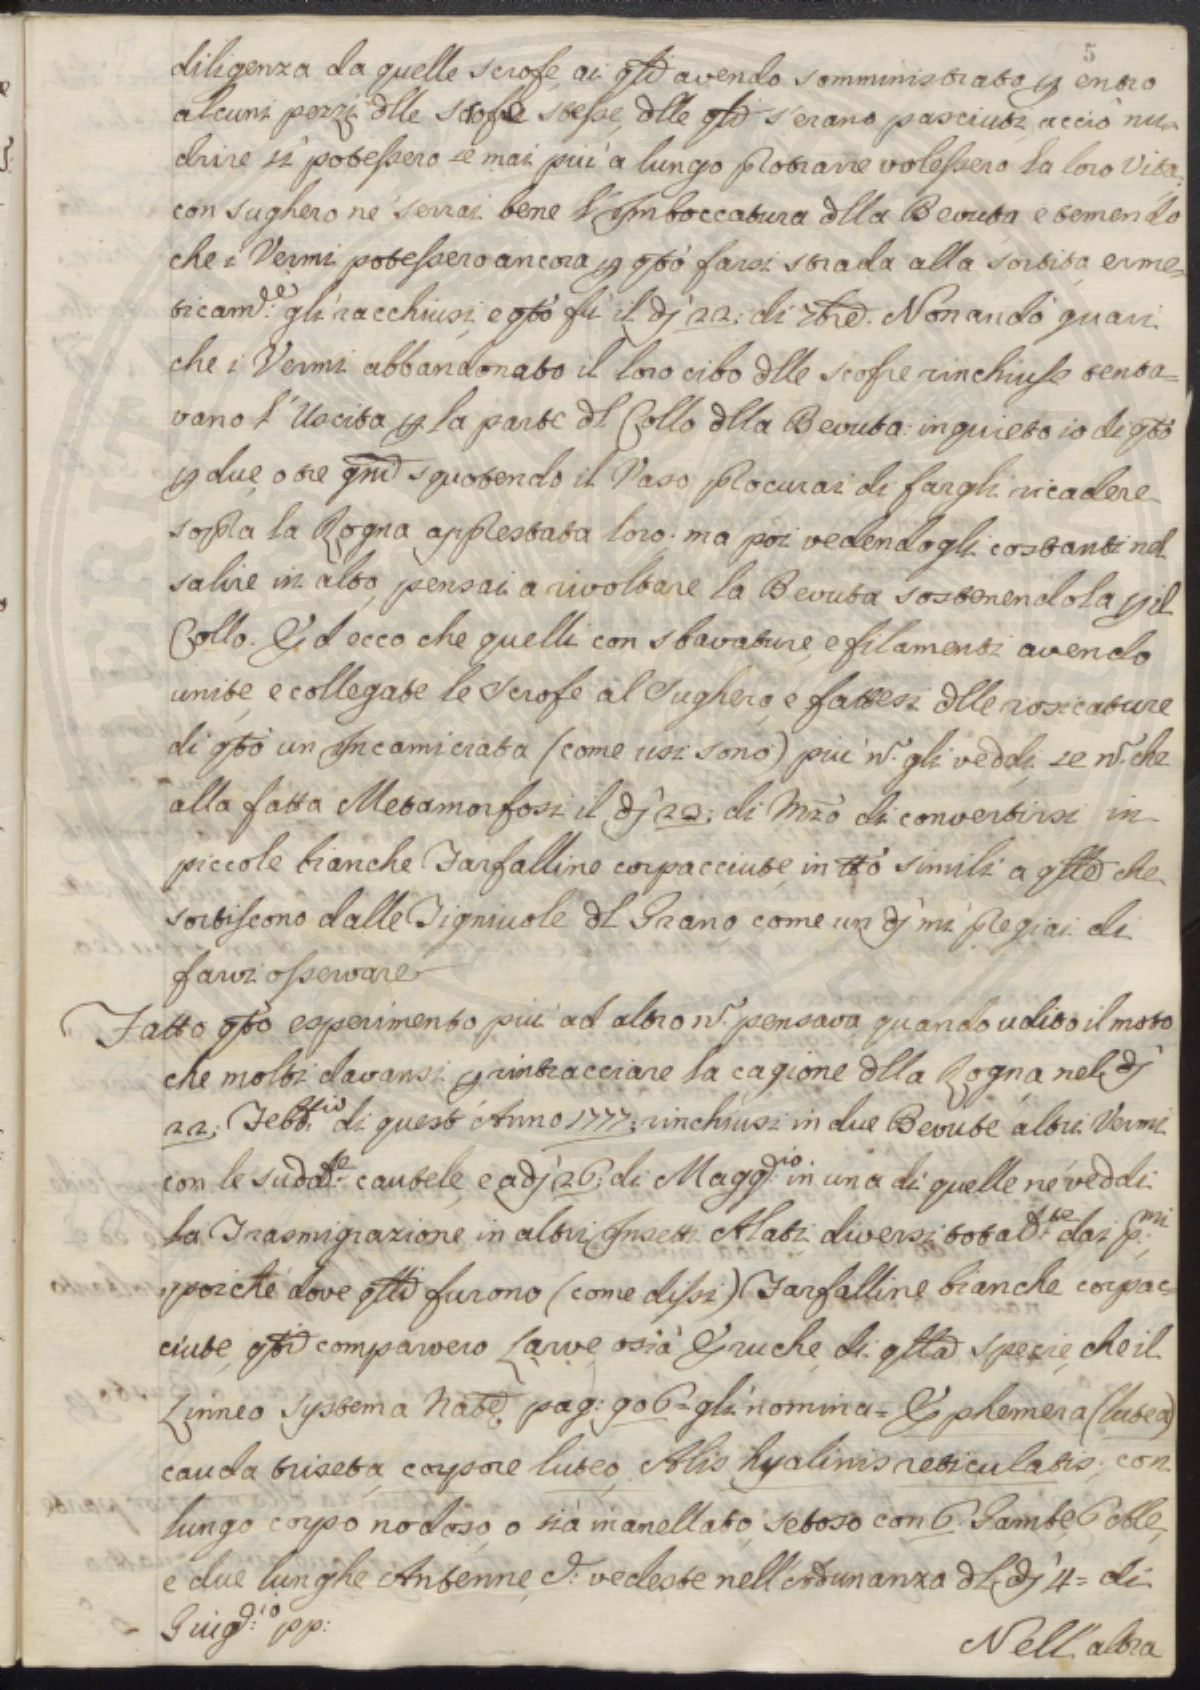 5
diligenza da quelle scrofe, ai qłi avendo somministrato p entro
alcuni pezzi dlle scrofe stesse, dlle qłi s'erano pasciuti, acciò nu-
drire si potessero se mai più a lungo Protrarre volessero la loro Vita,
con sughero ne serrai bene l'Imboccatura dlla Bevuta e temendo
che i Vermi potessero ancora p qto farsi strada alla sortita, erme=
ticam.te gli racchiusi, e qto fù il dj 22: di 7bre. Non andò guari
che i Vermi abbandonato il loro cibo dlle scrofe rinchiuse tenta=
vano l'Uscita p la parte dl Collo dlla Bevuta: inquieto io di qto
p due, o tre gni squotendo il Vaso Procurai di fargli ricadere
soPra la Rogna apPrestata loro: ma poi vedendogli costanti nel
salire in alto, pensai a rivoltare la Bevuta sostenendola p il
Collo. Ed ecco che quelli con sbavature, e filamenti avendo
unite, e collegate le scrofe al sughero, e fattesi dlle rosicature
di qto un Incamiciata (come usi sono) più n. gli veddi, se n. che
alla fatta Metamorfosi il dj 22: di Mzo di convertirsi in
piccole bianche Farfalline corpacciute, in tto simili a qlle che
sortiscono dalle Tigniuole dl Grano, come un dj mi Pregiai di
farvi osservare
Fatto qto esperimento più ad altro n. pensava, quando udito il moto
che molti davansi p rintracciare la cagione dlla Rogna nel dj
22: Febb.io di quest'Anno 1777: rinchiusi in due Bevute altri Vermi
con le sudd.te cautele, e adj 26: di Magg.io in una di quelle ne veddi
la Trasmigrazione in altri Insetti Alati, diversi total.te dai p.mi
poiche dove qlli furono (come dissi) Farfalline bianche corpac=
ciute, qti comparvero Larve, osia Eruche, di qlla specie, che il
Linneo Systema Nate, pag: 906= gli nomina= Ephemera (lutea)
cauda triseta, corpore luteo, Alis hyalinis reticulatis, con
lungo corpo nodoso, o sia inanellato, setoso con 6. Gambe, 6 Alle,
e due lunghe Antenne, C. vedeste nell'Adunanza dl dj 4= di
Giug.io pp:
Nell'altra